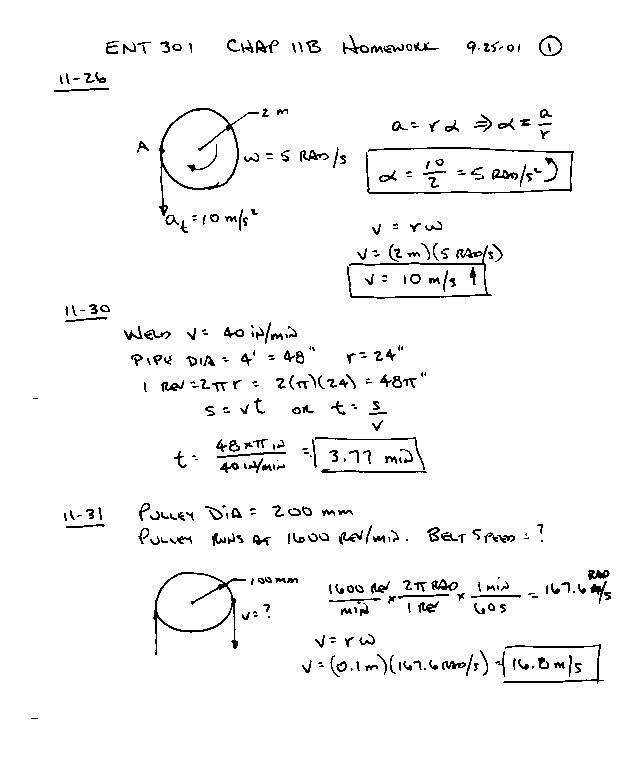 ENT 301 CHAP 11B HOMEWORK 9-25-01 1
11-26
2 m
A
ω = 5 RAD/s
a_t = 10 m/s²
a = r α ⇒ α = a/r
α = 10/2 = 5 RAD/s²
v = r ω
v = (2 m)(5 RAD/s)
v = 10 m/s ↑
11-30
WELD V = 40 IN/MIN
PIPE DIA = 4' = 48" r = 24"
1 REV = 2πr = 2(π)(24) = 48π"
s = vt OR t = s/v
t = 48×π IN / 40 IN/MIN = 3.77 MIN
11-31 PULLEY DIA = 200 mm
PULLEY RUNS AT 1600 REV/MIN. BELT SPEED = ?
100 mm
v = ?
1600 REV/MIN × 2π RAD/1 REV × 1 MIN/60 S = 167.6 RAD/s
v = r ω
v = (0.1 m)(167.6 RAD/s) = 16.8 m/s